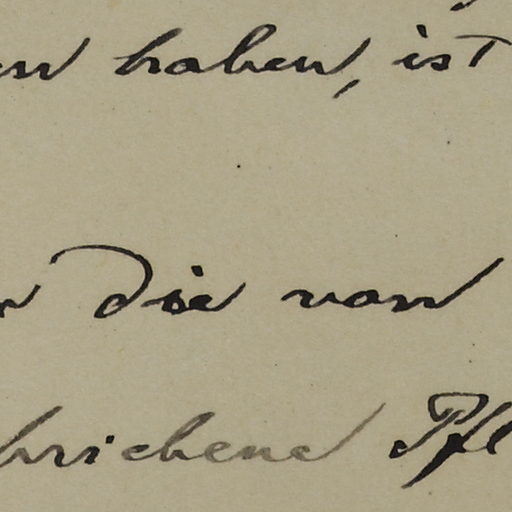 en haben, ist
die von
hriebene Pfl